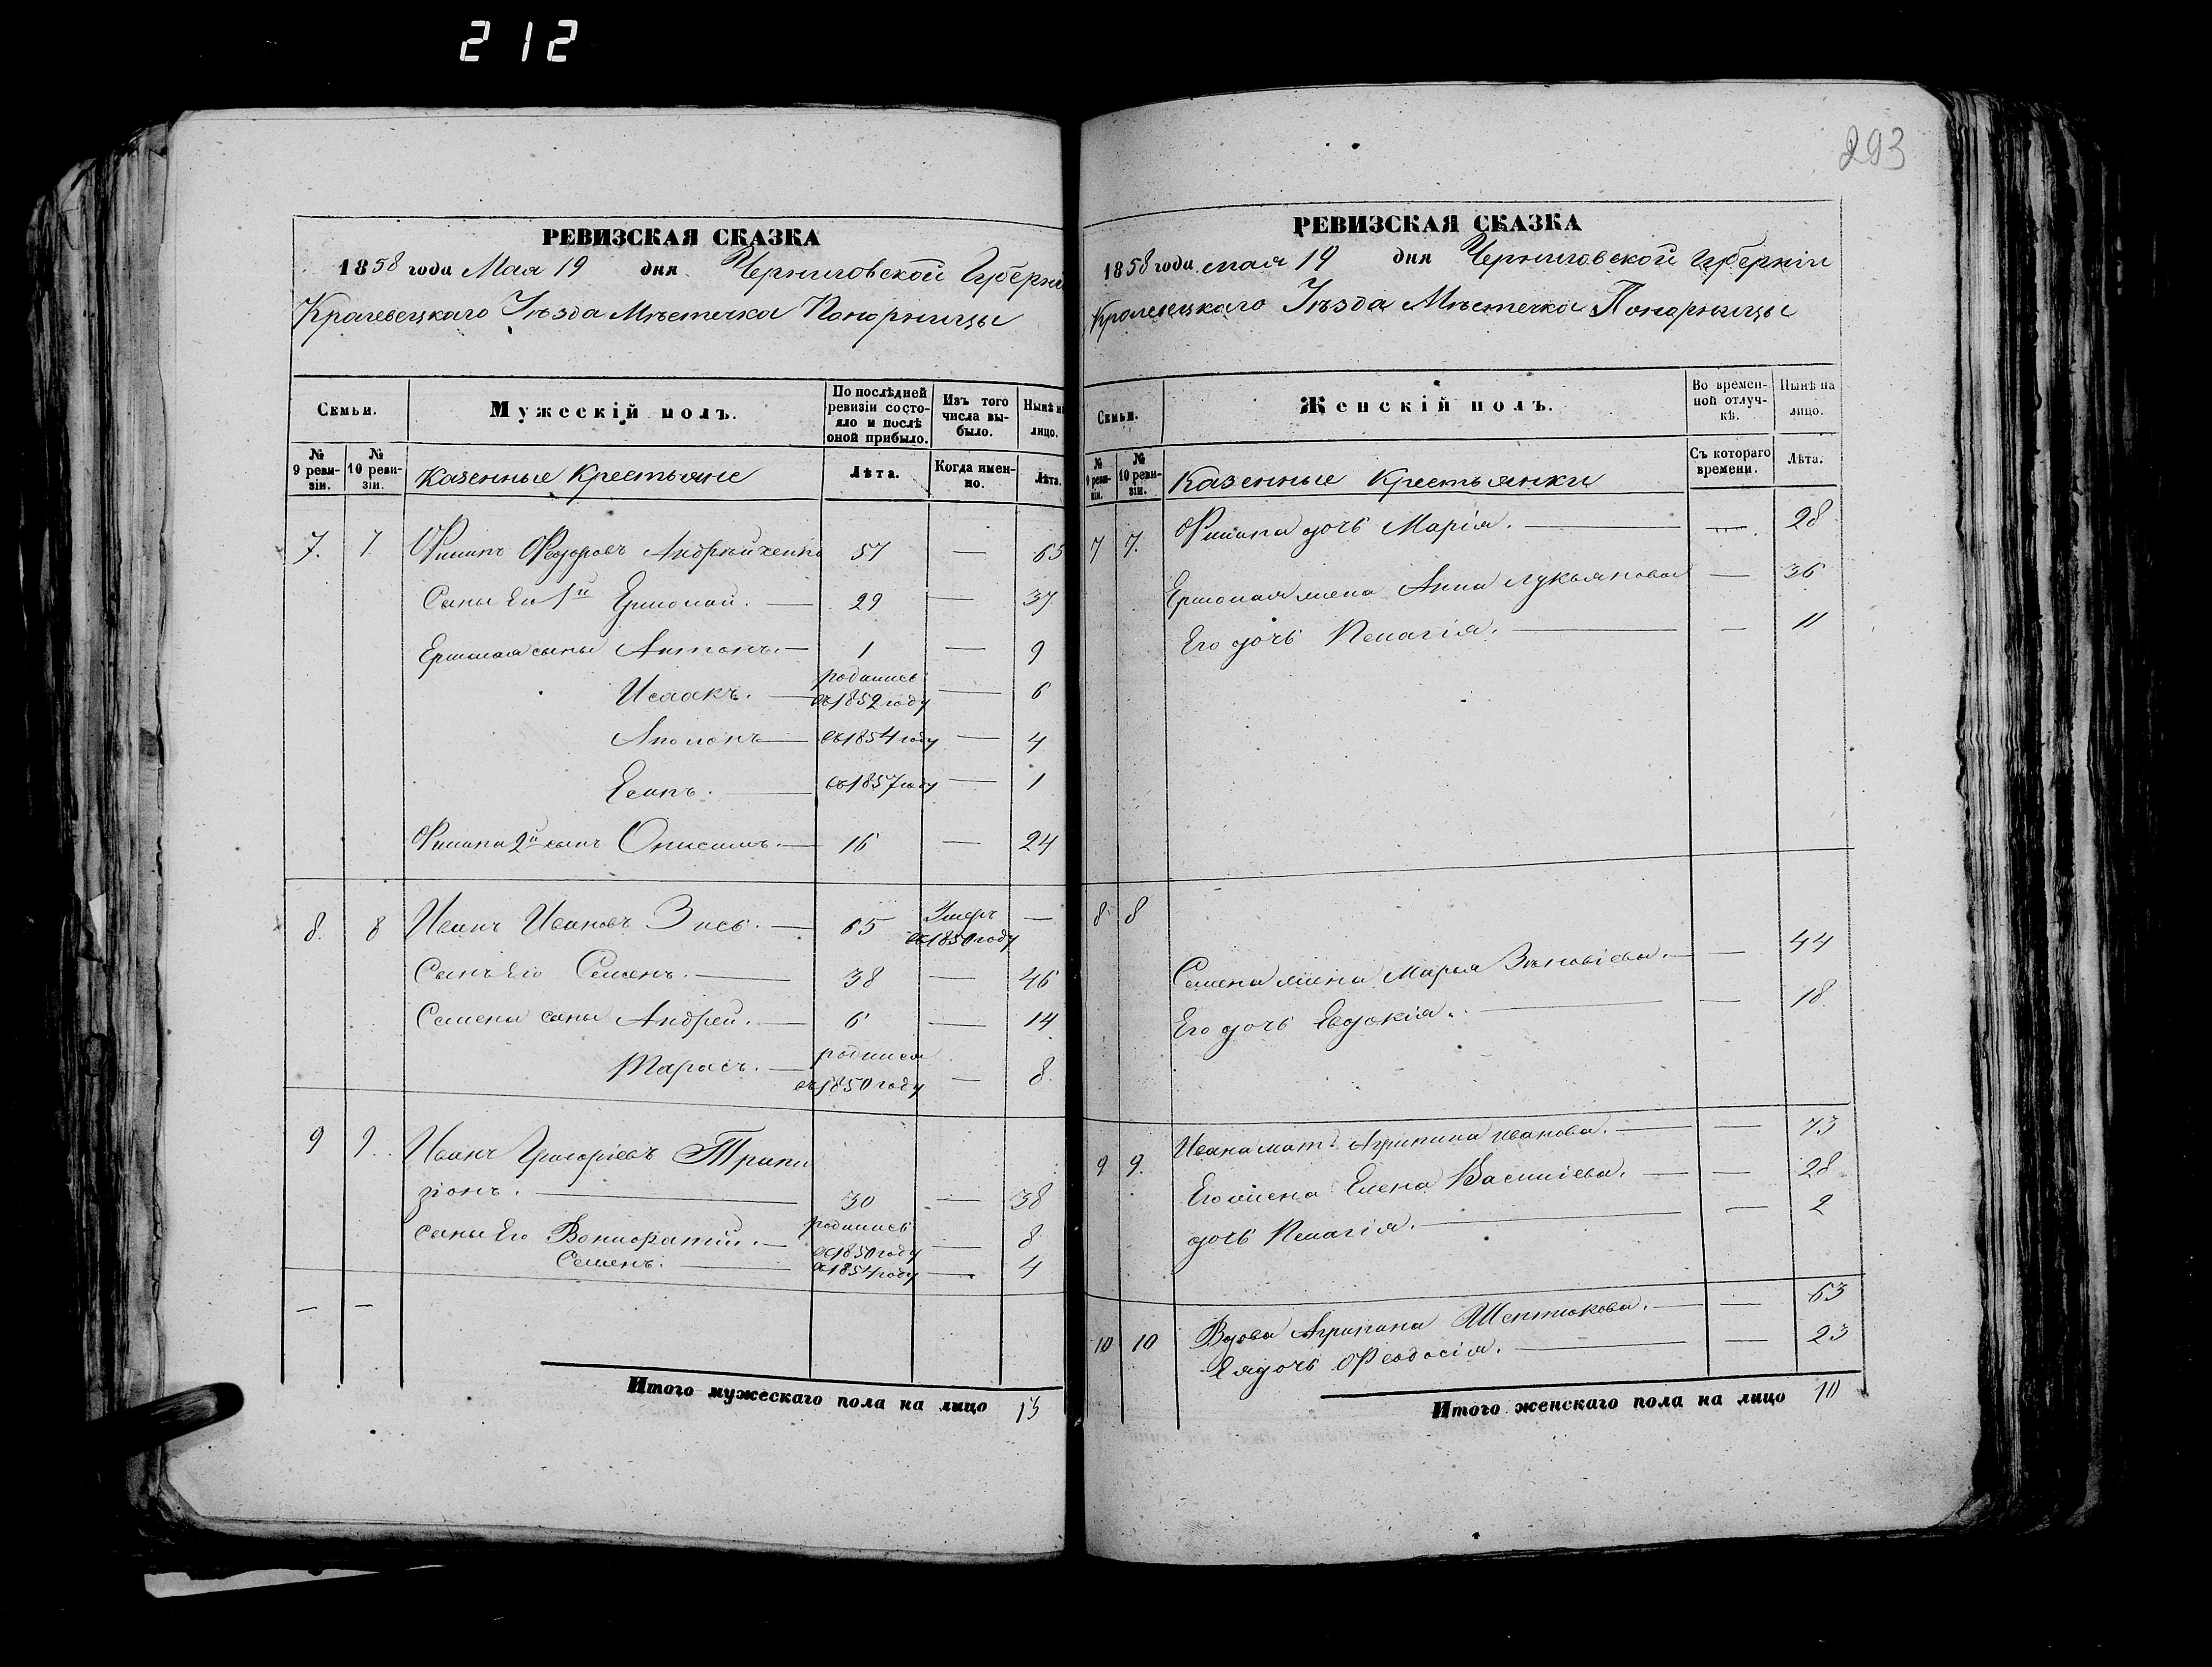 212
293
РЕВИЗСКАЯ СКАЗКА
1858 года Мая 19 дня Черниговской Губерни
Кролевецкаго Уѣзда Мѣстечка Понорницы
Семьи.
Мужескій полъ.
По послѣдней ревизіи состояло и послѣ оной прибыло.
Изъ того числа выбыло.
Нынѣ на лицо.
№ 9 ревизіи.
№ 10 ревизіи.
Казенные Крестьяне
Лѣта.
Когда именно.
Лѣта.
7. 7. Филипъ Федоровъ Андрѣйченко 57 — 65
Сыны Его 1й Ермолай. — 29 — 37
Ермолая сыны Антонъ. — 1 — 9
родились
Исаакъ. — въ 1852 году — 6
Аполонъ — въ 1854 году — 4
Есипъ. — въ 1857 году — 1
Филипа 2й сынъ Онисимъ. — 16 — 24
8. 8 Иванъ Ивановъ Зись. — 65 Умеръ въ 1850 году —
Сынъ Его Семенъ. — 38 — 46
Семена сыны Андрей. — 6 — 14
родился
Тарасъ. — въ 1850 году — 8.
9 9. Иванъ Григоріевъ Трапи
зіонъ. — 30 — 38
родились
сыны Его Вонифатій. — въ 1850 году — 8
Семенъ. — въ 1854 году — 4
— —
Итого мужескаго пола на лицо 13
РЕВИЗСКАЯ СКАЗКА
1858 года мая 19 дня Черниговской Губерніи
Кролевецкаго Уѣзда Мѣстечка Понорницы
Семьи.
Женскій полъ.
Во временной отлучкѣ.
Нынѣ на лицо.
№ 9 ревизіи.
№ 10 ревизіи.
Казенные Крестьянки
Съ котораго времени.
Лѣта.
7 7. Филипа дочь Марія. — — 28
Ермолая жена Анна Лукьянова — 36
Его дочь Пелагія. — — 11
8 8
Семена жена Марья Зѣновіева. — — 44
Его дочь Евдокія. — — 18
9 9. Ивана мать Агрипина Иванова. — — 73
Его жена Елена Василіева. — — 28
дочь Пелагія. — — 2
10 10 Вдова Агрипина Шептюкова. — — 63
Ея дочь Феодосія. — — 23
Итого женскаго пола на лицо 10